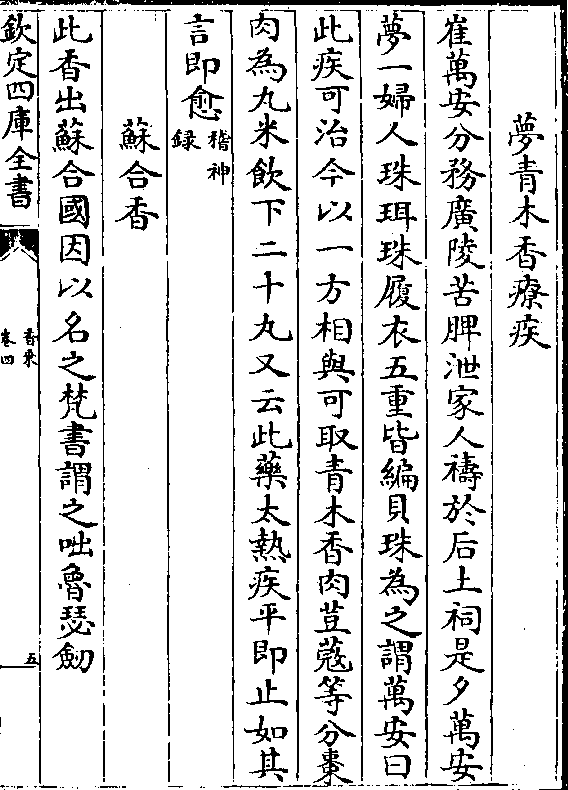 夢青木香療疾
崔萬安分務廣陵苦脾泄家人禱於后土祠是夕萬安
夢一婦人珠珥珠履衣五重皆編貝珠為之謂萬安曰
此疾可治今以一方相與可取青木香肉荳蔻等分棗
肉為丸米飲下二十丸又云此藥太熱疾平即止如其
言即愈稽神錄
蘇合香
此香出蘇合國因以名之梵書謂之咄魯瑟劒
欽定四庫全書
香乘
卷四
五